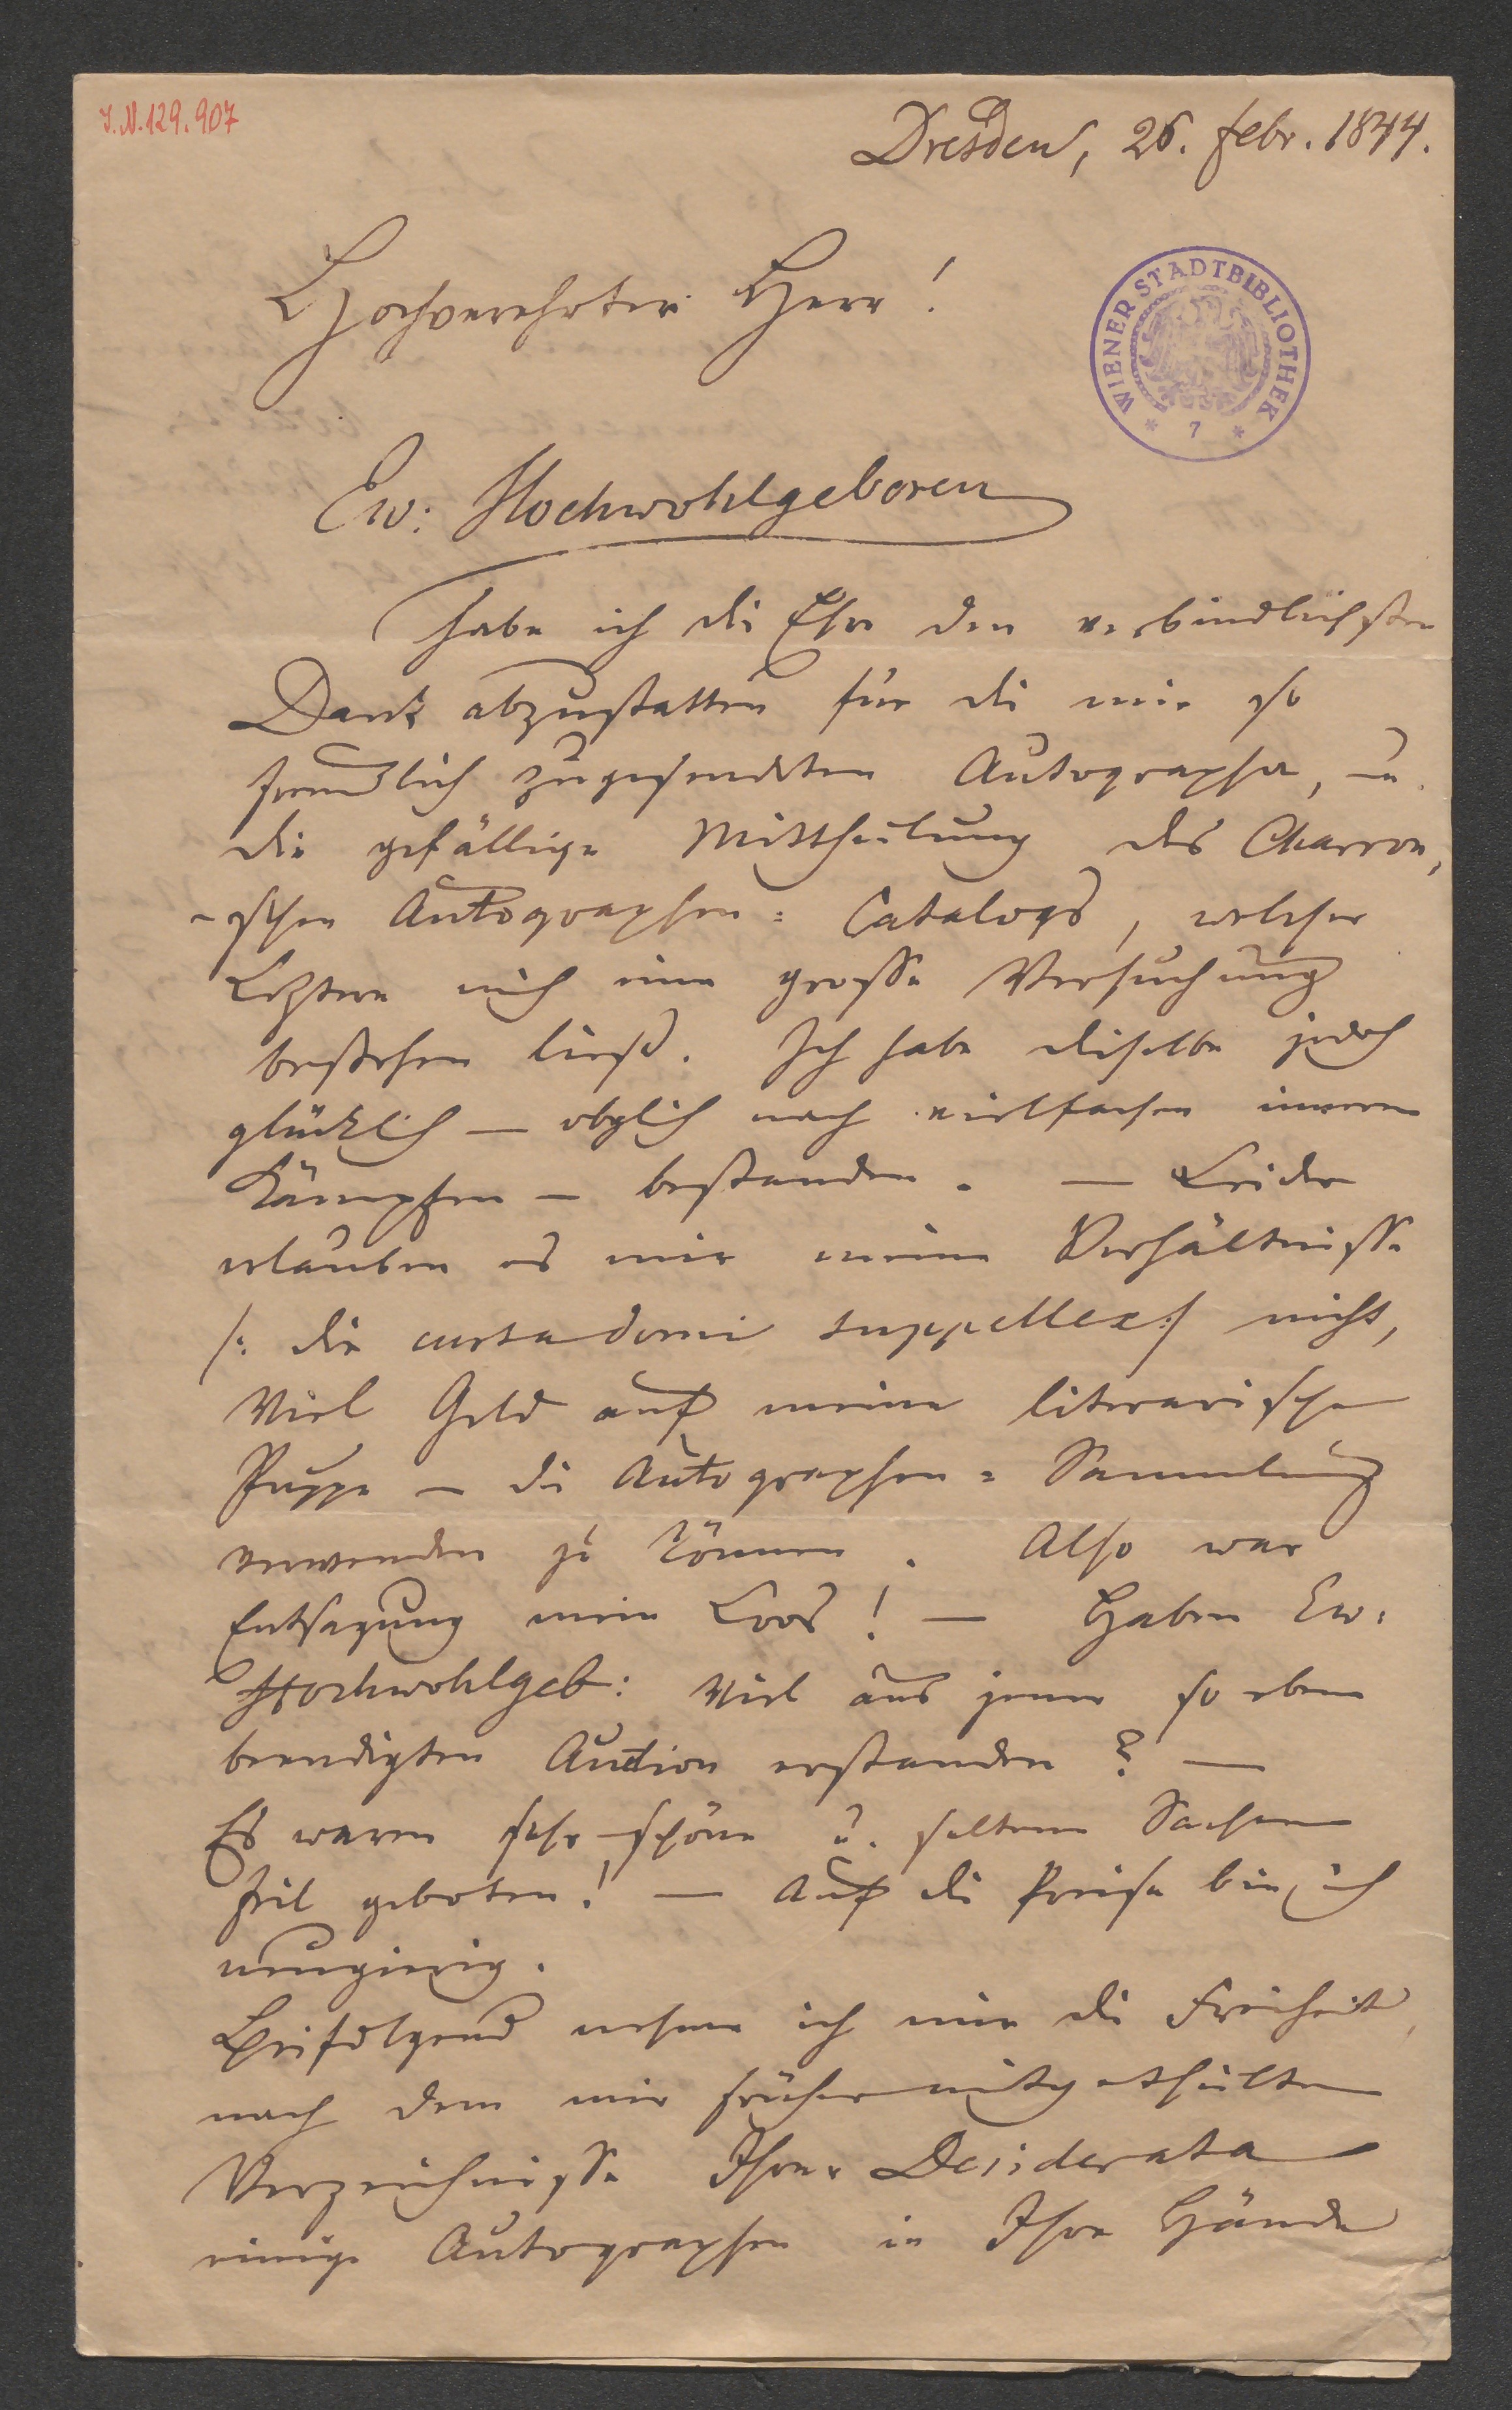 J.N.129.907
Dresden, 26. febr. 1844.
Hochverehrter Herr!
WIENER STADTBIBLIOTHEK
* 7 *
Ew: Hochwohlgeboren
habe ich die Ehre den verbindlichsten
Dank abzustatten für die mir so
freundlich zugesendeten Autographe, u.
die gefällige Mittheilung des Charron,
-schen Autographen= Catalogs, welcher
Leztere mich eine grosse Versuchung
bestehen liess. Ich habe dieselbe jedoch
glücklich — obgleich nach vielfachen innern
Kämpfen — bestanden. — Leider
erlauben es mir meine Verhältnisse
/: die curta domi suppellex :/ nicht,
viel Geld auf meine literarische
Puppe — die Autographen= Sammlung
verwenden zu können. Also war
Entsagung mein Loos! — Haben Ew:
Hochwohlgeb: viel aus jener so eben
beendigten Auction erstanden? —
Es waren sehr schöne u. seltene Sachen
feil geboten! — Auf die Preise bin ich
neugierig.
Beifolgend nehme ich mir die Freiheit,
nach dem mir früher mitgetheilten
Verzeichnisse Ihrer Desiderata
einige Autographen in Ihre Hände